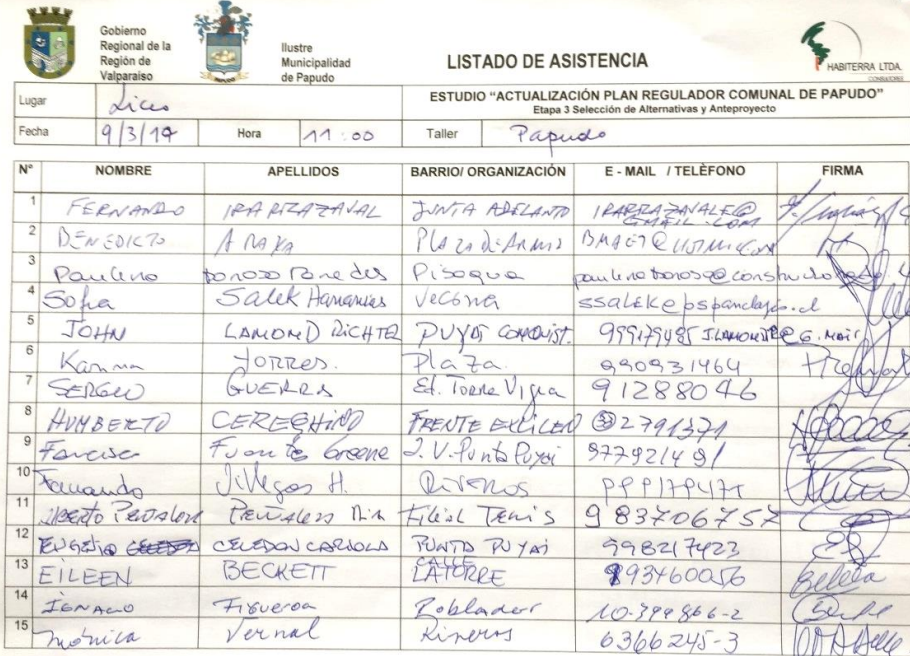 Gobierno
Regional de la
Región de
Valparaiso
PAPUDO
Ilustre
Municipalidad
de Papudo
LISTADO DE ASISTENCIA
HABITERRA LTDA.
CONSULTORES
Lugar Liceo
ESTUDIO “ACTUALIZACIÓN PLAN REGULADOR COMUNAL DE PAPUDO”
Etapa 3 Selección de Alternativas y Anteproyecto
Fecha 9/3/19 Hora 11:00 Taller Papudo
Nº NOMBRE APELLIDOS BARRIO/ ORGANIZACIÓN E - MAIL / TELÈFONO FIRMA
1 FERNANDO IRARRAZAVAL JUNTA ADELANTO IRARRAZAVALE@
GMAIL.COM
2 BENEDICTO ARAYA PLAZA DE ARMAS
3 Paulina Donoso Paredes Pisagua
4 Sofia Salek Hananias Vecina
5 JOHN LAMOND RICHTER PUYAI CONQUIST. 999179485
6 Karina Torres. Plaza. 990931464
7 SERGIO GUERRA Ed. Torre Vigia 91288046
8 HUMBERTO CERECHINO FRENTE 2791371
9 Fuentes Greene J. V. Punta Puyai 977921491
10 Fernando Villegas H.
11 PEÑALOZA Filial Tenis 983706757
12 EUGENIO CELEDON CARIOLA PUNTA PUYAI 998217423
13 EILEEN BECKETT CALLE
LATORRE 93460056
14 IGNACIO Figueroa Poblador 10-394866-2
15 Mónica Vernal Riveros 6366245-3